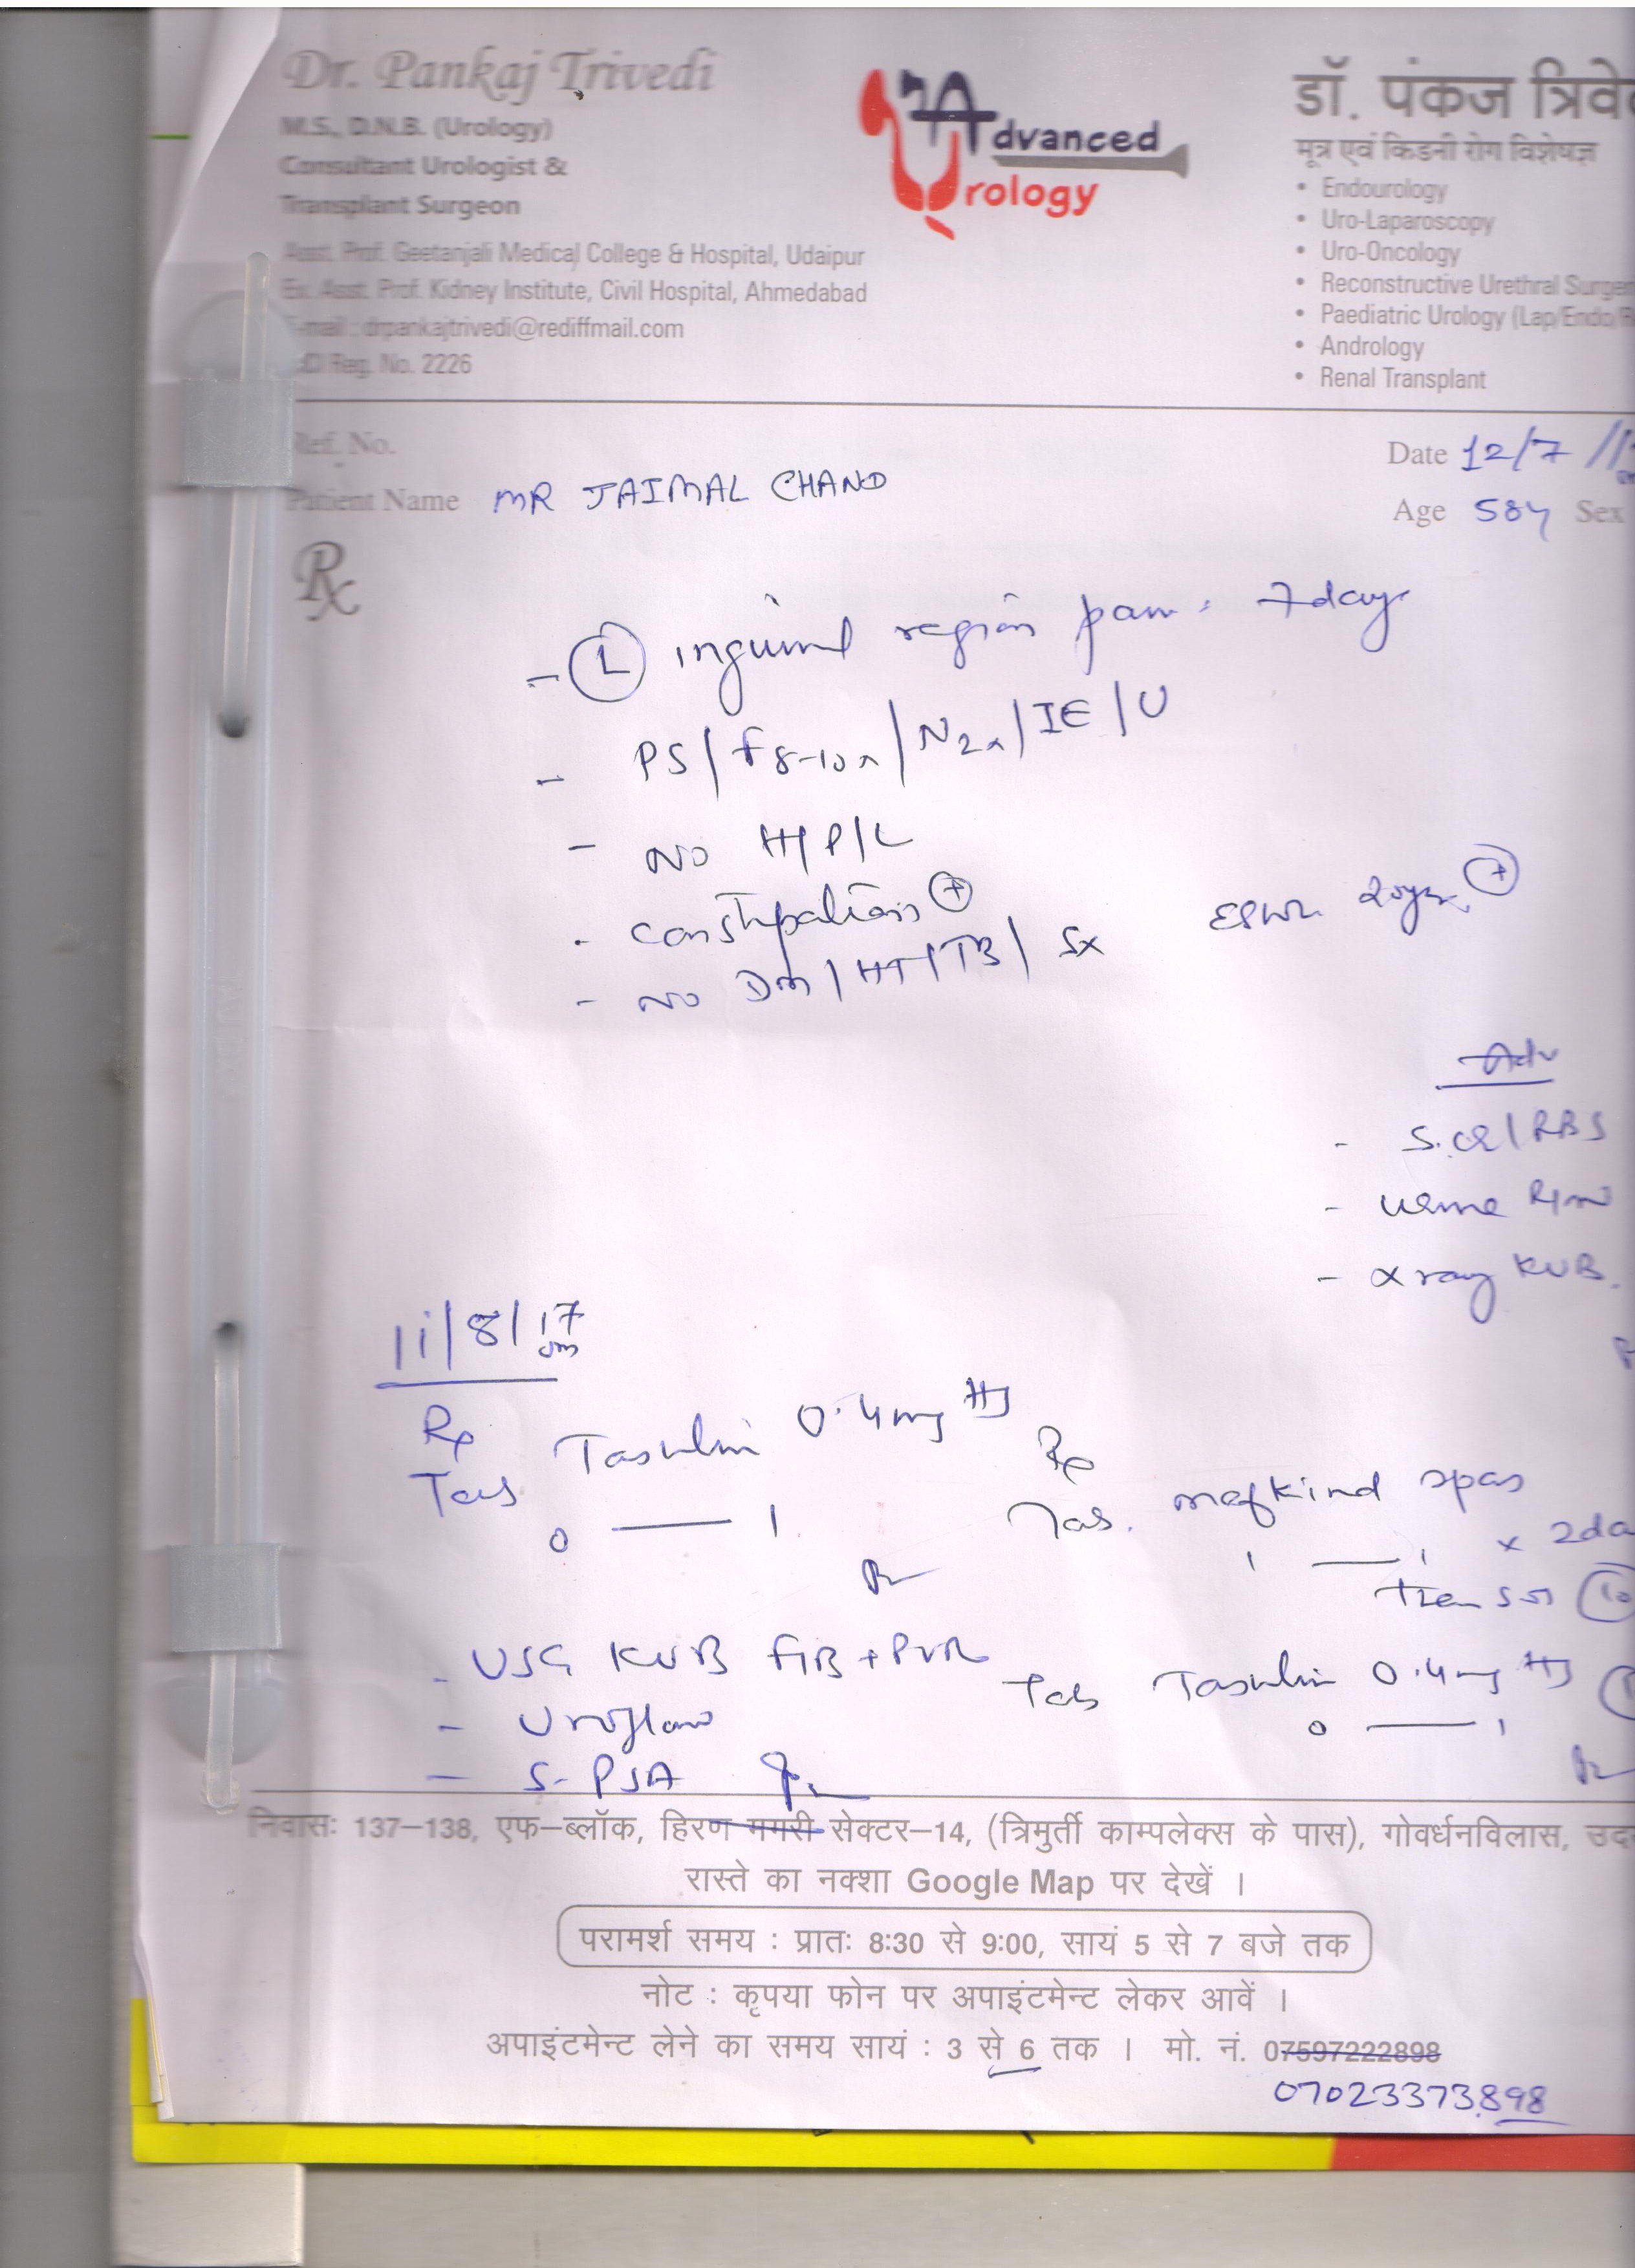 Dr. Pankaj Trivedi
M.S., D.N.B. (Urology)
Consultant Urologist &
Transplant Surgeon
Asst. Prof. Geetanjali Medical College & Hospital, Udaipur
Ex. Asst. Prof. Kidney Institute, Civil Hospital, Ahmedabad
E-mail : drpankajtrivedi@rediffmail.com
Reg. No. 2226
Advanced
Urology
डॉ. पंकज
मूत्र एवं किडनी रोग विशेषज्ञ
• Endourology
• Uro-Laparoscopy
• Uro-Oncology
• Reconstructive Urethral
• Paediatric Urology (Lap/Endo/
• Andrology
• Renal Transplant
Ref. No.
Date 12/7
Patient Name MR JAIMAL CHAND
Age 58y Sex
Rx
- (L) inguinal region pain 7days
- PS/F8-10x/N2x/IE/U
- NO H/P/L
- constipation (+)
- NO DM/HT/TB/Sx ESWL 20yrs (+)
Adv
- S.CR/RBS
- urine R/M
- X ray KUB.
11/8/17
Rp
Tab Tasulin 0.4mg HS
0 — 1
Rp
Tab. mefkind spas
1 — 1 x 2
then SOS (10
Tab Tasulin 0.4mg HS
0 — 1
- USG KUB + PVR
- Uroflow
- S-PSA
निवासः 137–138, एफ–ब्लॉक, हिरण मगरी सेक्टर–14, (त्रिमुर्ती काम्पलेक्स के पास), गोवर्धनविलास,
रास्ते का नक्शा Google Map पर देखें ।
परामर्श समय : प्रातः 8:30 से 9:00, सायं 5 से 7 बजे तक
नोट : कृपया फोन पर अपाइंटमेन्ट लेकर आवें ।
अपाइंटमेन्ट लेने का समय सायं : 3 से 6 तक । मो. नं. 07597222898
07023373898